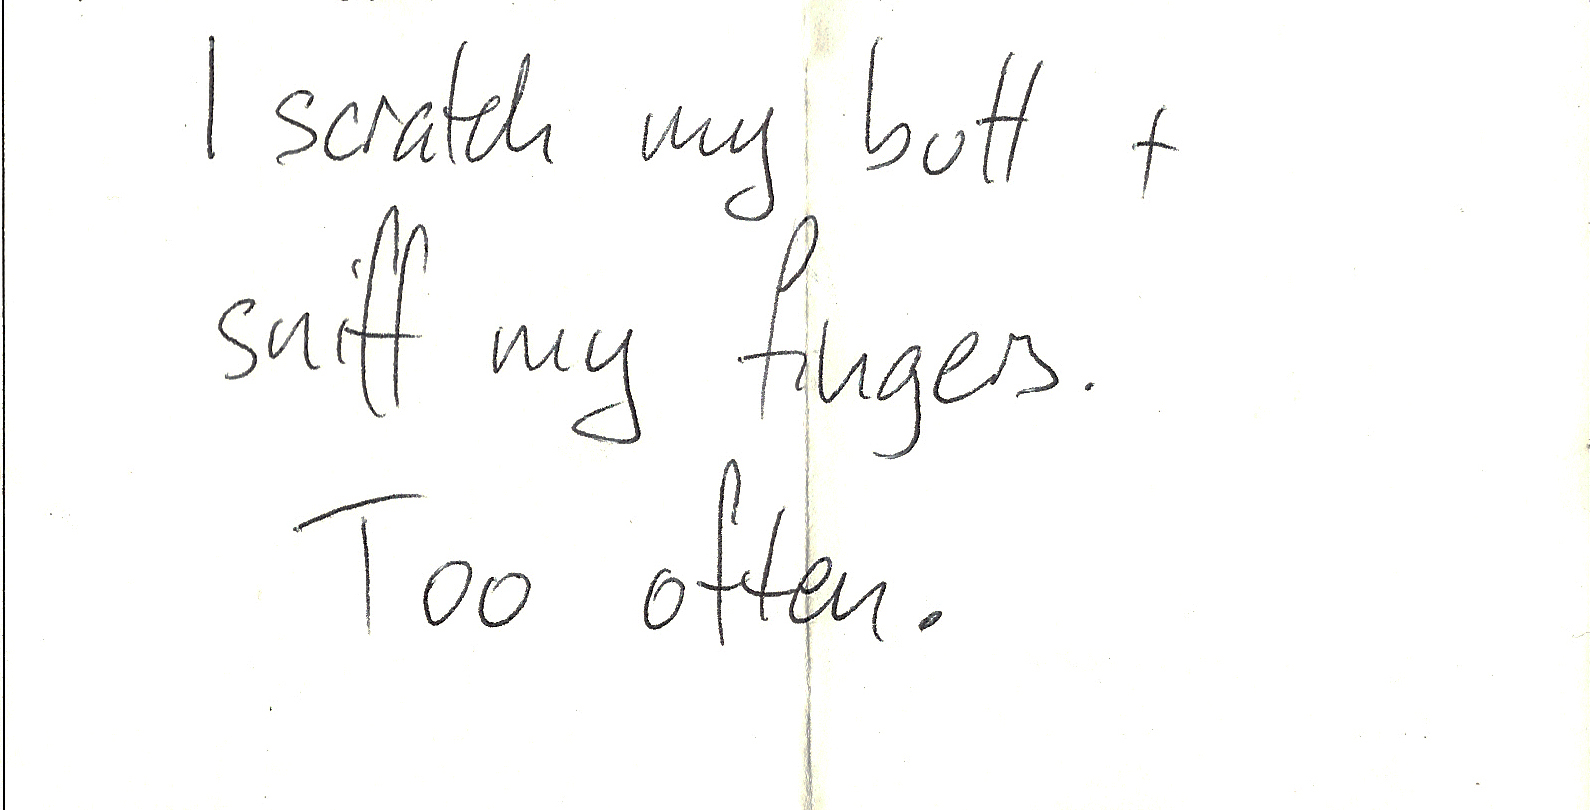 I scratch my butt +
sniff my fingers.
Too often.